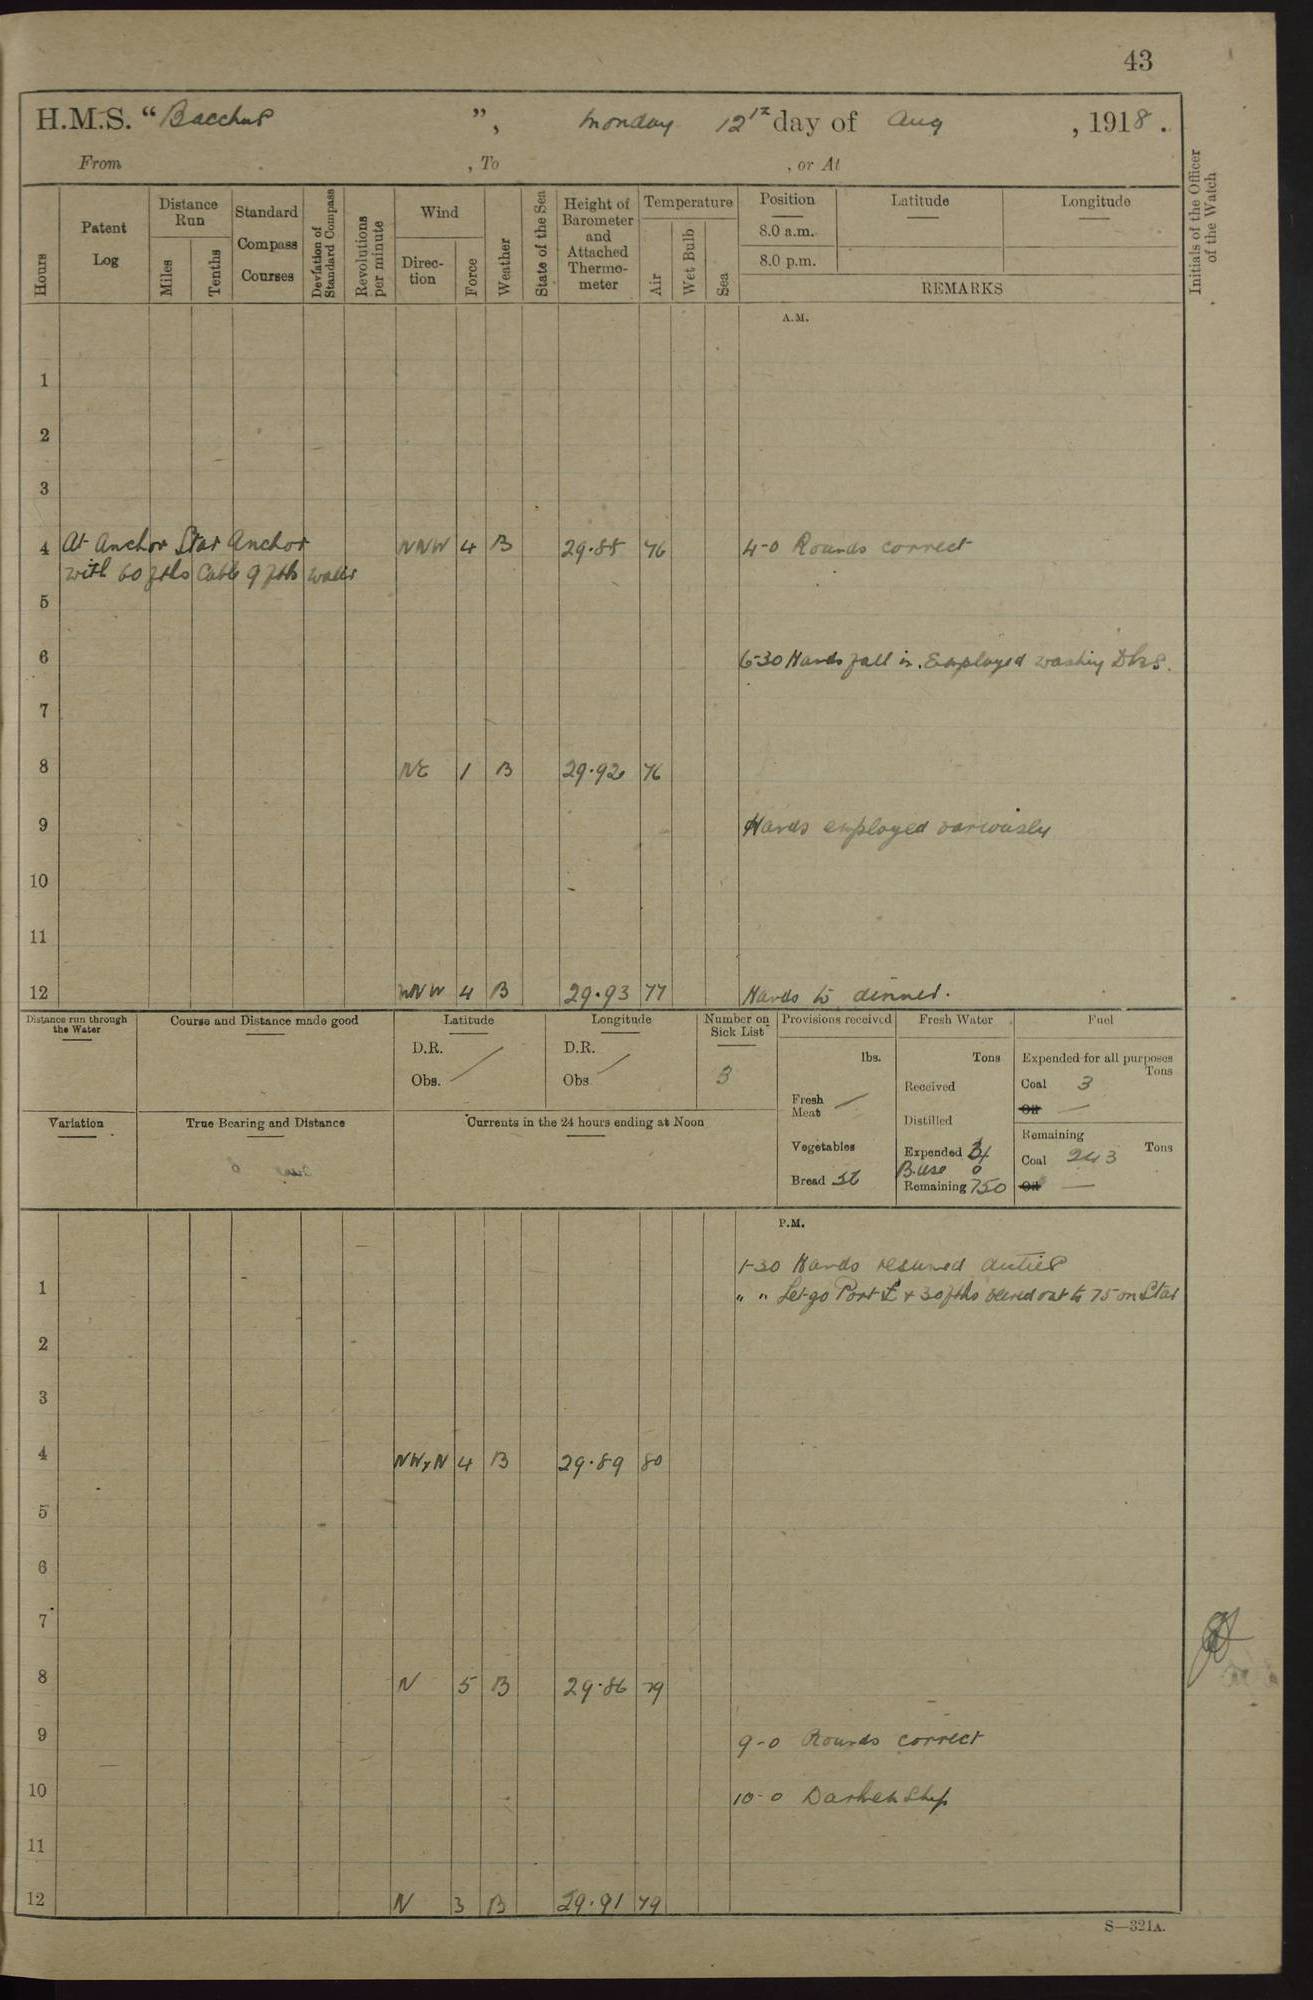 43
H.M.S. “Bacchus”, Monday 12th day of Aug, 1918.
From , To , or At
Hours
Patent Log
Distance Run
Miles
Tenths
Standard Compass Courses
Deviation of Standard Compass
Revolutions per minute
Wind
Direction
Force
Weather
State of the Sea
Height of Barometer and Attached Thermometer
Temperature
Air
Wet Bulb
Sea
Position
8.0 a.m.
8.0 p.m.
Latitude
Longitude
REMARKS
Initials of the Officer of the Watch
A.M.
1
2
3
4 At Anchor Star Anchor NNW 4 B 29.88 76 4-0 Rounds correct
with 60 fths Cable 9 fths water
5
6 6-30 Hands fall in. Employed washing Dks.
7
8 NE 1 B 29.92 76
9 Hands employed variously
10
11
12 NNW 4 B 29.93 77 Hands to dinner.
Distance run through the Water
Course and Distance made good
Latitude
D.R.
Obs.
Longitude
D.R.
Obs
Number on Sick List
3
Provisions received
lbs.
Fresh Meat —
Vegetables
Bread
Fresh Water
Tons
Received
Distilled
Expended
B. use 0
Remaining 750
Fuel
Expended for all purposes
Tons
Coal 3
Oil —
Remaining
Tons
Coal 243
Oil —
Variation
True Bearing and Distance
Currents in the 24 hours ending at Noon
P.M.
1-30 Hands resumed duties
1 " " Let go Port ⚓ & 30 fths veered out to 75 on Star
2
3
4 NWxN 4 B 29.89 80
5
6
7
8 N 5 B 29.86 79
9 9-0 Rounds correct
10 10-0 Darken Ship
11
12 N 3 B 29.91 79
S—321A.